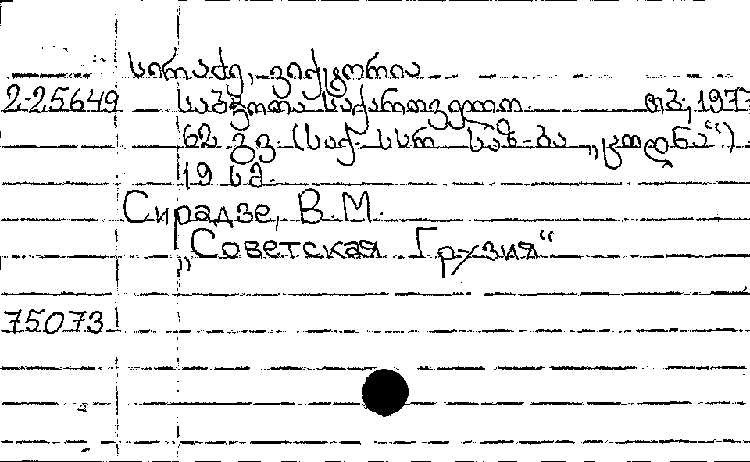 სირაძე, ვიქტორია
2-25649 საბჭოთა საქართველო. თბ., 197
62 გვ. (საქ. სსრ საზ-ბა „ცოდნა“)
19 სმ.
Сирадзе, В.М.
„Советская Грузия“
75073